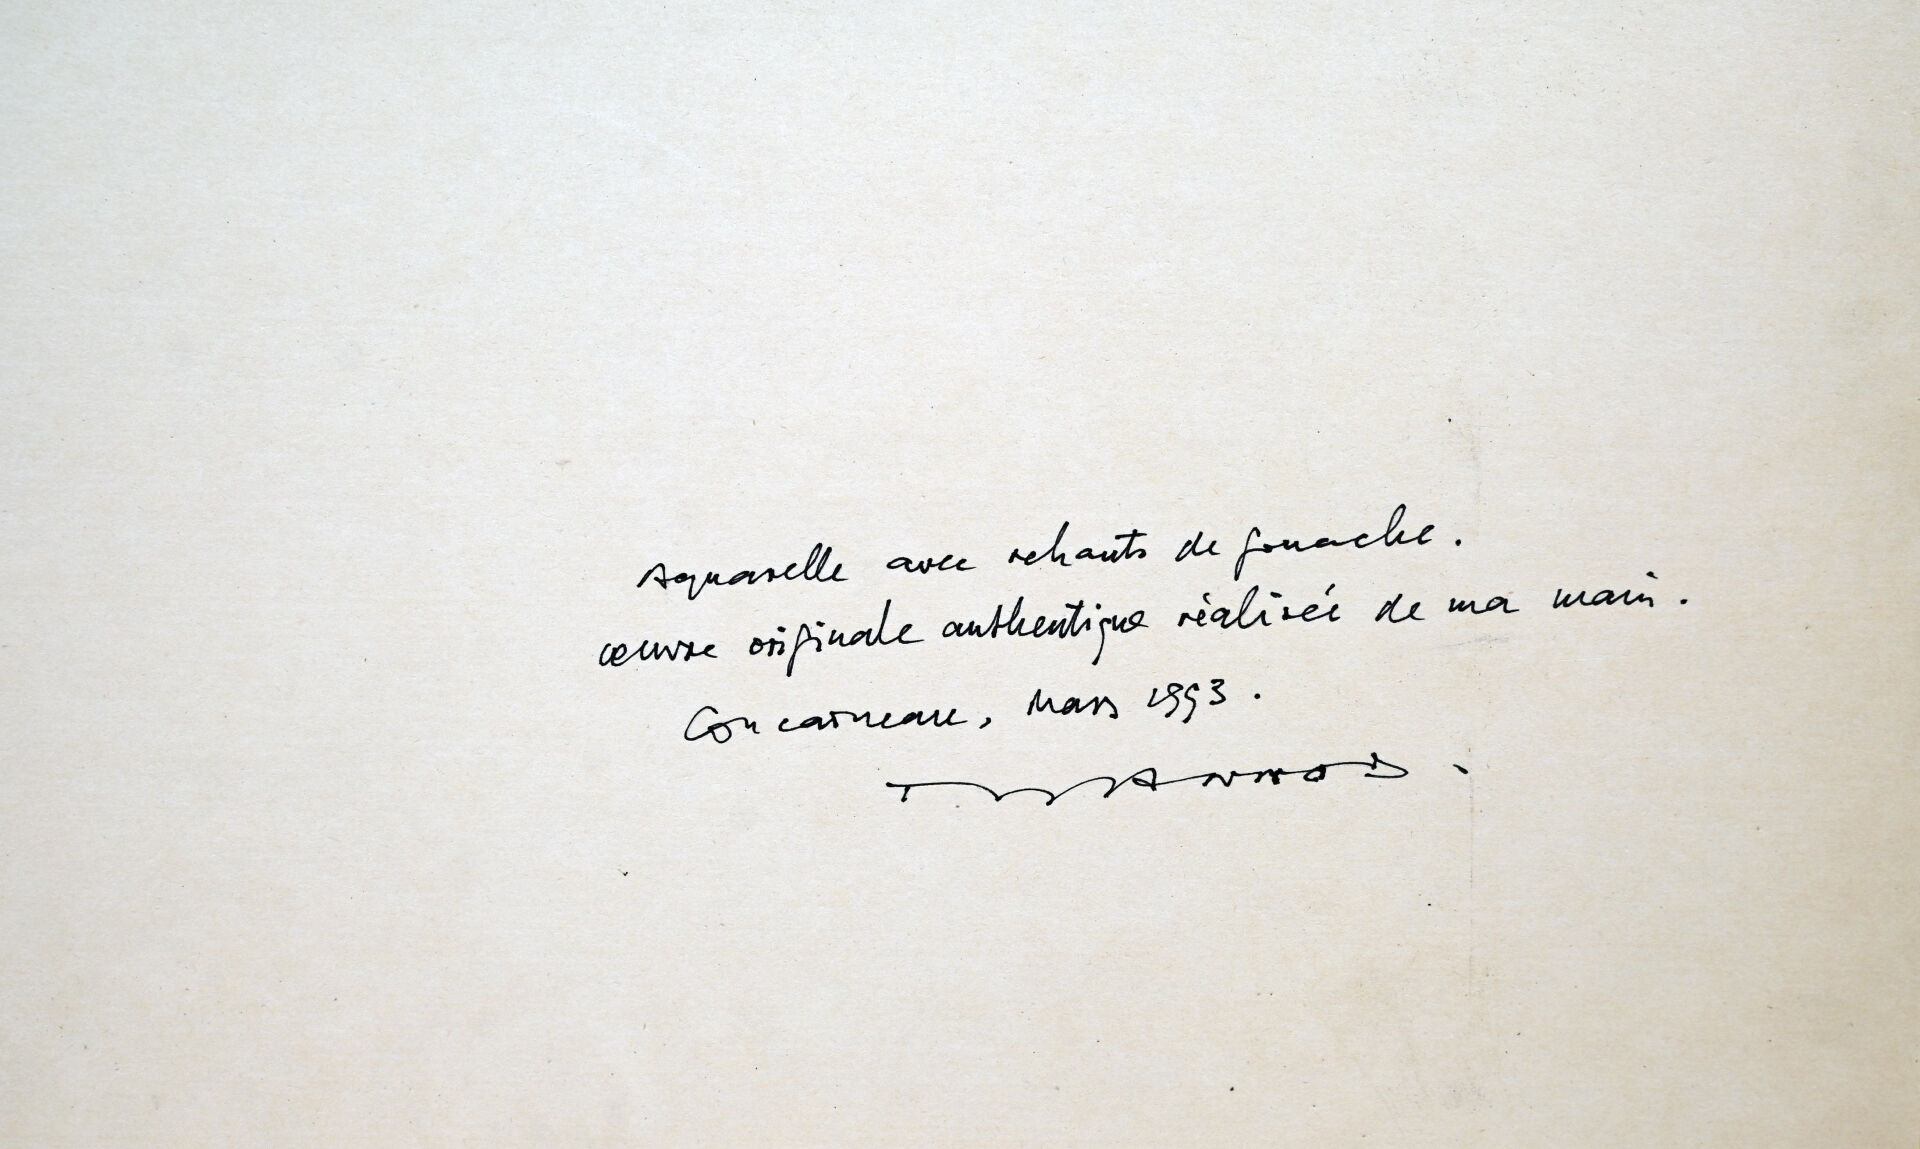 Aquarelle avec rehauts de gouache.
œuvre originale authentique réalisée de ma main.
Concarneau, Mars 1993.